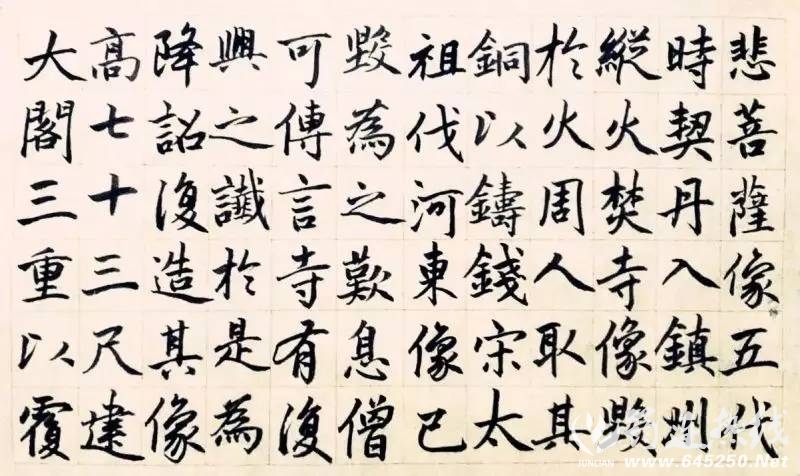 悲菩薩像五代
時契丹入鎮州
縱火焚寺像毀
於火周人取其
銅以鑄錢宋太
祖伐河東像已
毀為之歎息僧
可傳言寺有復
興之讖於是為
降詔復造其像
高七十三尺建
大閣三重以覆
筠连热线
JUNLIAN
www.645250.Net